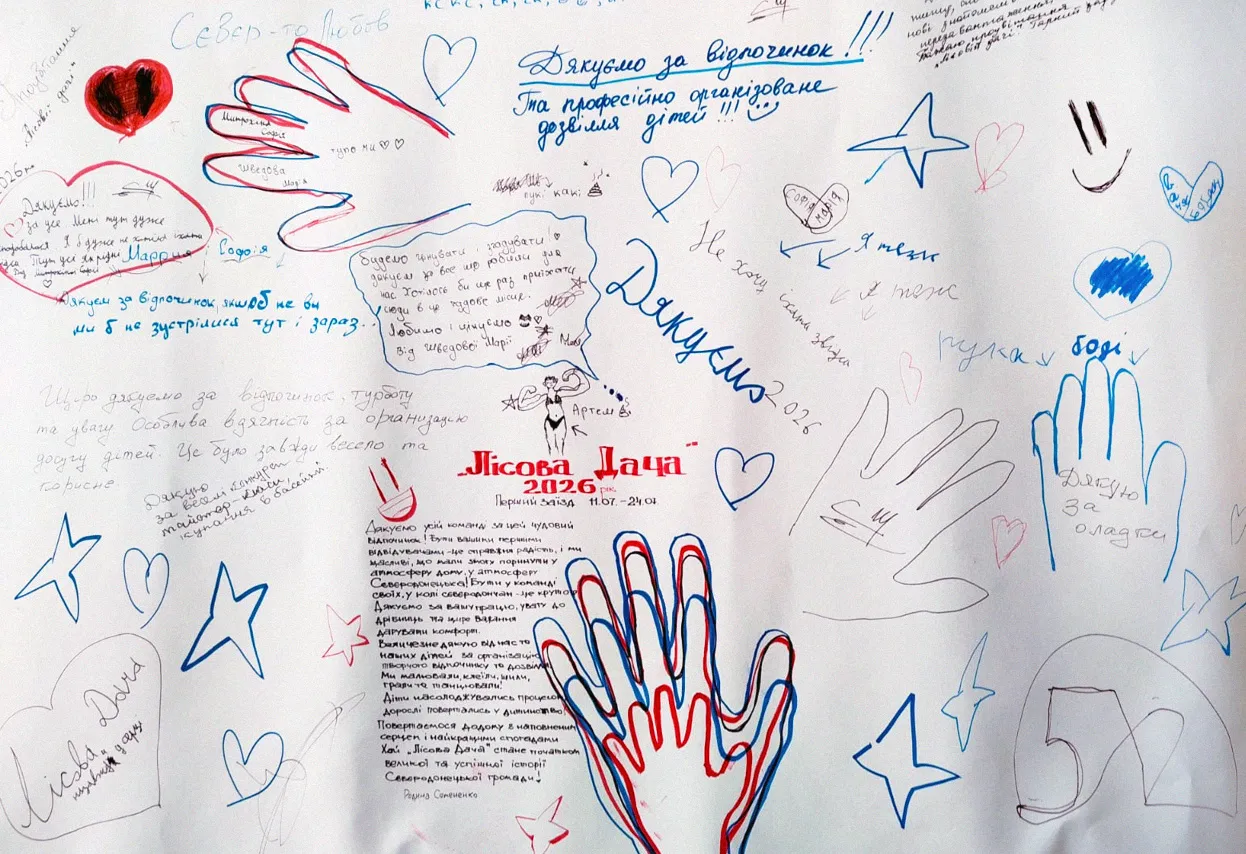 Сєвєр-то Любов
Дякуємо за відпочинок!!!
та професійно організоване
дозвілля дітей!!!
Митрохіна
Софія
тупо ми
Шведова
Марія
2026
Дякуємо!!!
за усе Мені тут дуже
Маррія
Софія
Дякуєм за відпочинок, якшоб не ви
ми б не зустрілися тут і зараз..
пукі какі
будемо цінувати і згадувати!
дякуєм за все шо робили для
нас Хотілося би ще раз приїхати
сюди в це чудове місце.
Любимо і цінуємо
Від Шведової Марії
СОФІЯ
МАРІЯ
Не хочу їхати звідси
Я теж
Я теж
Дякуємо
2026
рука боді
Дякую
за
оладки
Щиро дякуємо за відпочинок, турботу
та увагу Особлива вдячність за організацію
досугу дітей. Це було завжди весело та
корисне
Дякую
за веселі конкурси
майстер-класи,
купання в басейні.
Артем
„Лісова Дача"
2026 рік
Перший заїзд 11.07.–24.07
Дякуємо усій команді за цей чудовий
відпочинок! Бути вашими першими
відвідувачами – це справжня радість, і ми
щасливі, що мали змогу поринути у
атмосферу дому, у атмосферу
Сєвєродонецька! Бути у команді
своїх, у колі сєвєродончан – це круто
Дякуємо за вашу працю, увагу до
дрібниць та щире бажання
дарувати комфорт.
Величезне дякую від нас та
наших дітей за організацію
творчого відпочинку та дозвілля
Ми малювали, клеїли, шили,
грали та танцювали!
Діти насолоджувались процесом,
дорослі повертались у дитинство!
Повертаємося додому з наповненим
серцем і найкращими спогадами
Хай „Лісова Дача" стане початком
великої та успішної історії
Сєвєродонецької громади!
Родина Семененко
Лісова Дача